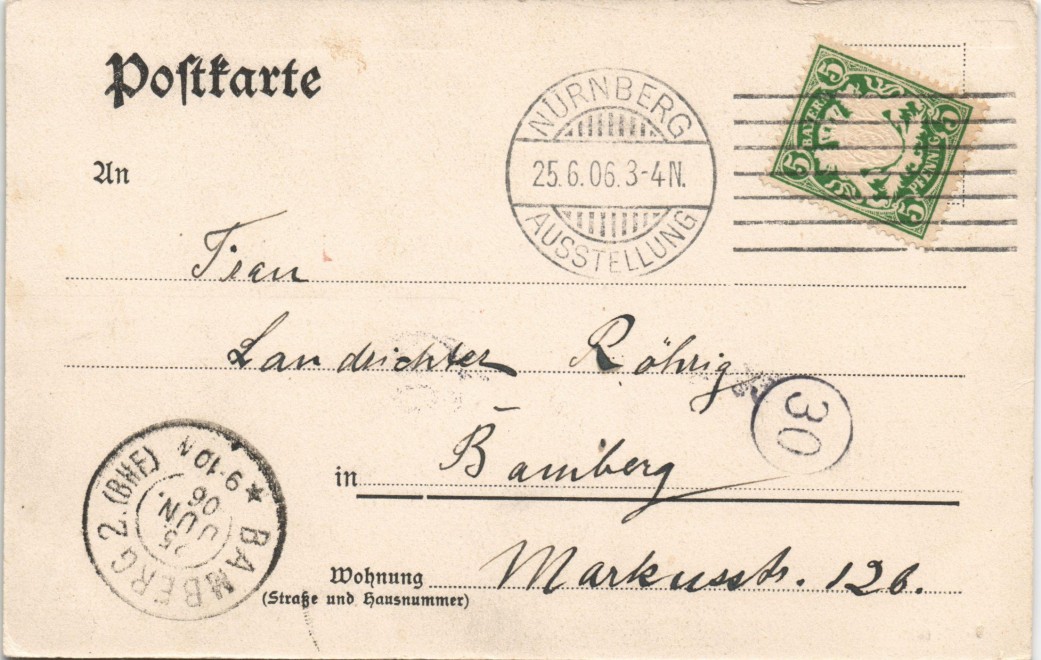 Postkarte
NÜRNBERG
25.6.06.3-4N.
AUSSTELLUNG
5 5 5 5
BAYERN
PFENNIG
An
Frau
Landrichter Röhrig
30
in Bamberg
BAMBERG 2. (BHF)
25.
JUN.
06
9-10 N
Wohnung Markusstr. 126.
(Straße und Hausnummer)